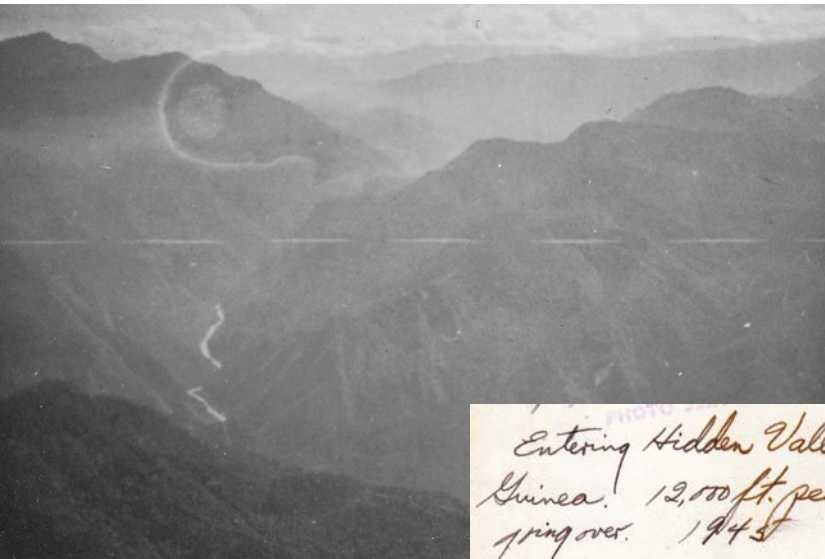 PHOTO
Entering Hidden Vall
Guinea. 12,000 ft. pe
going over. 1945